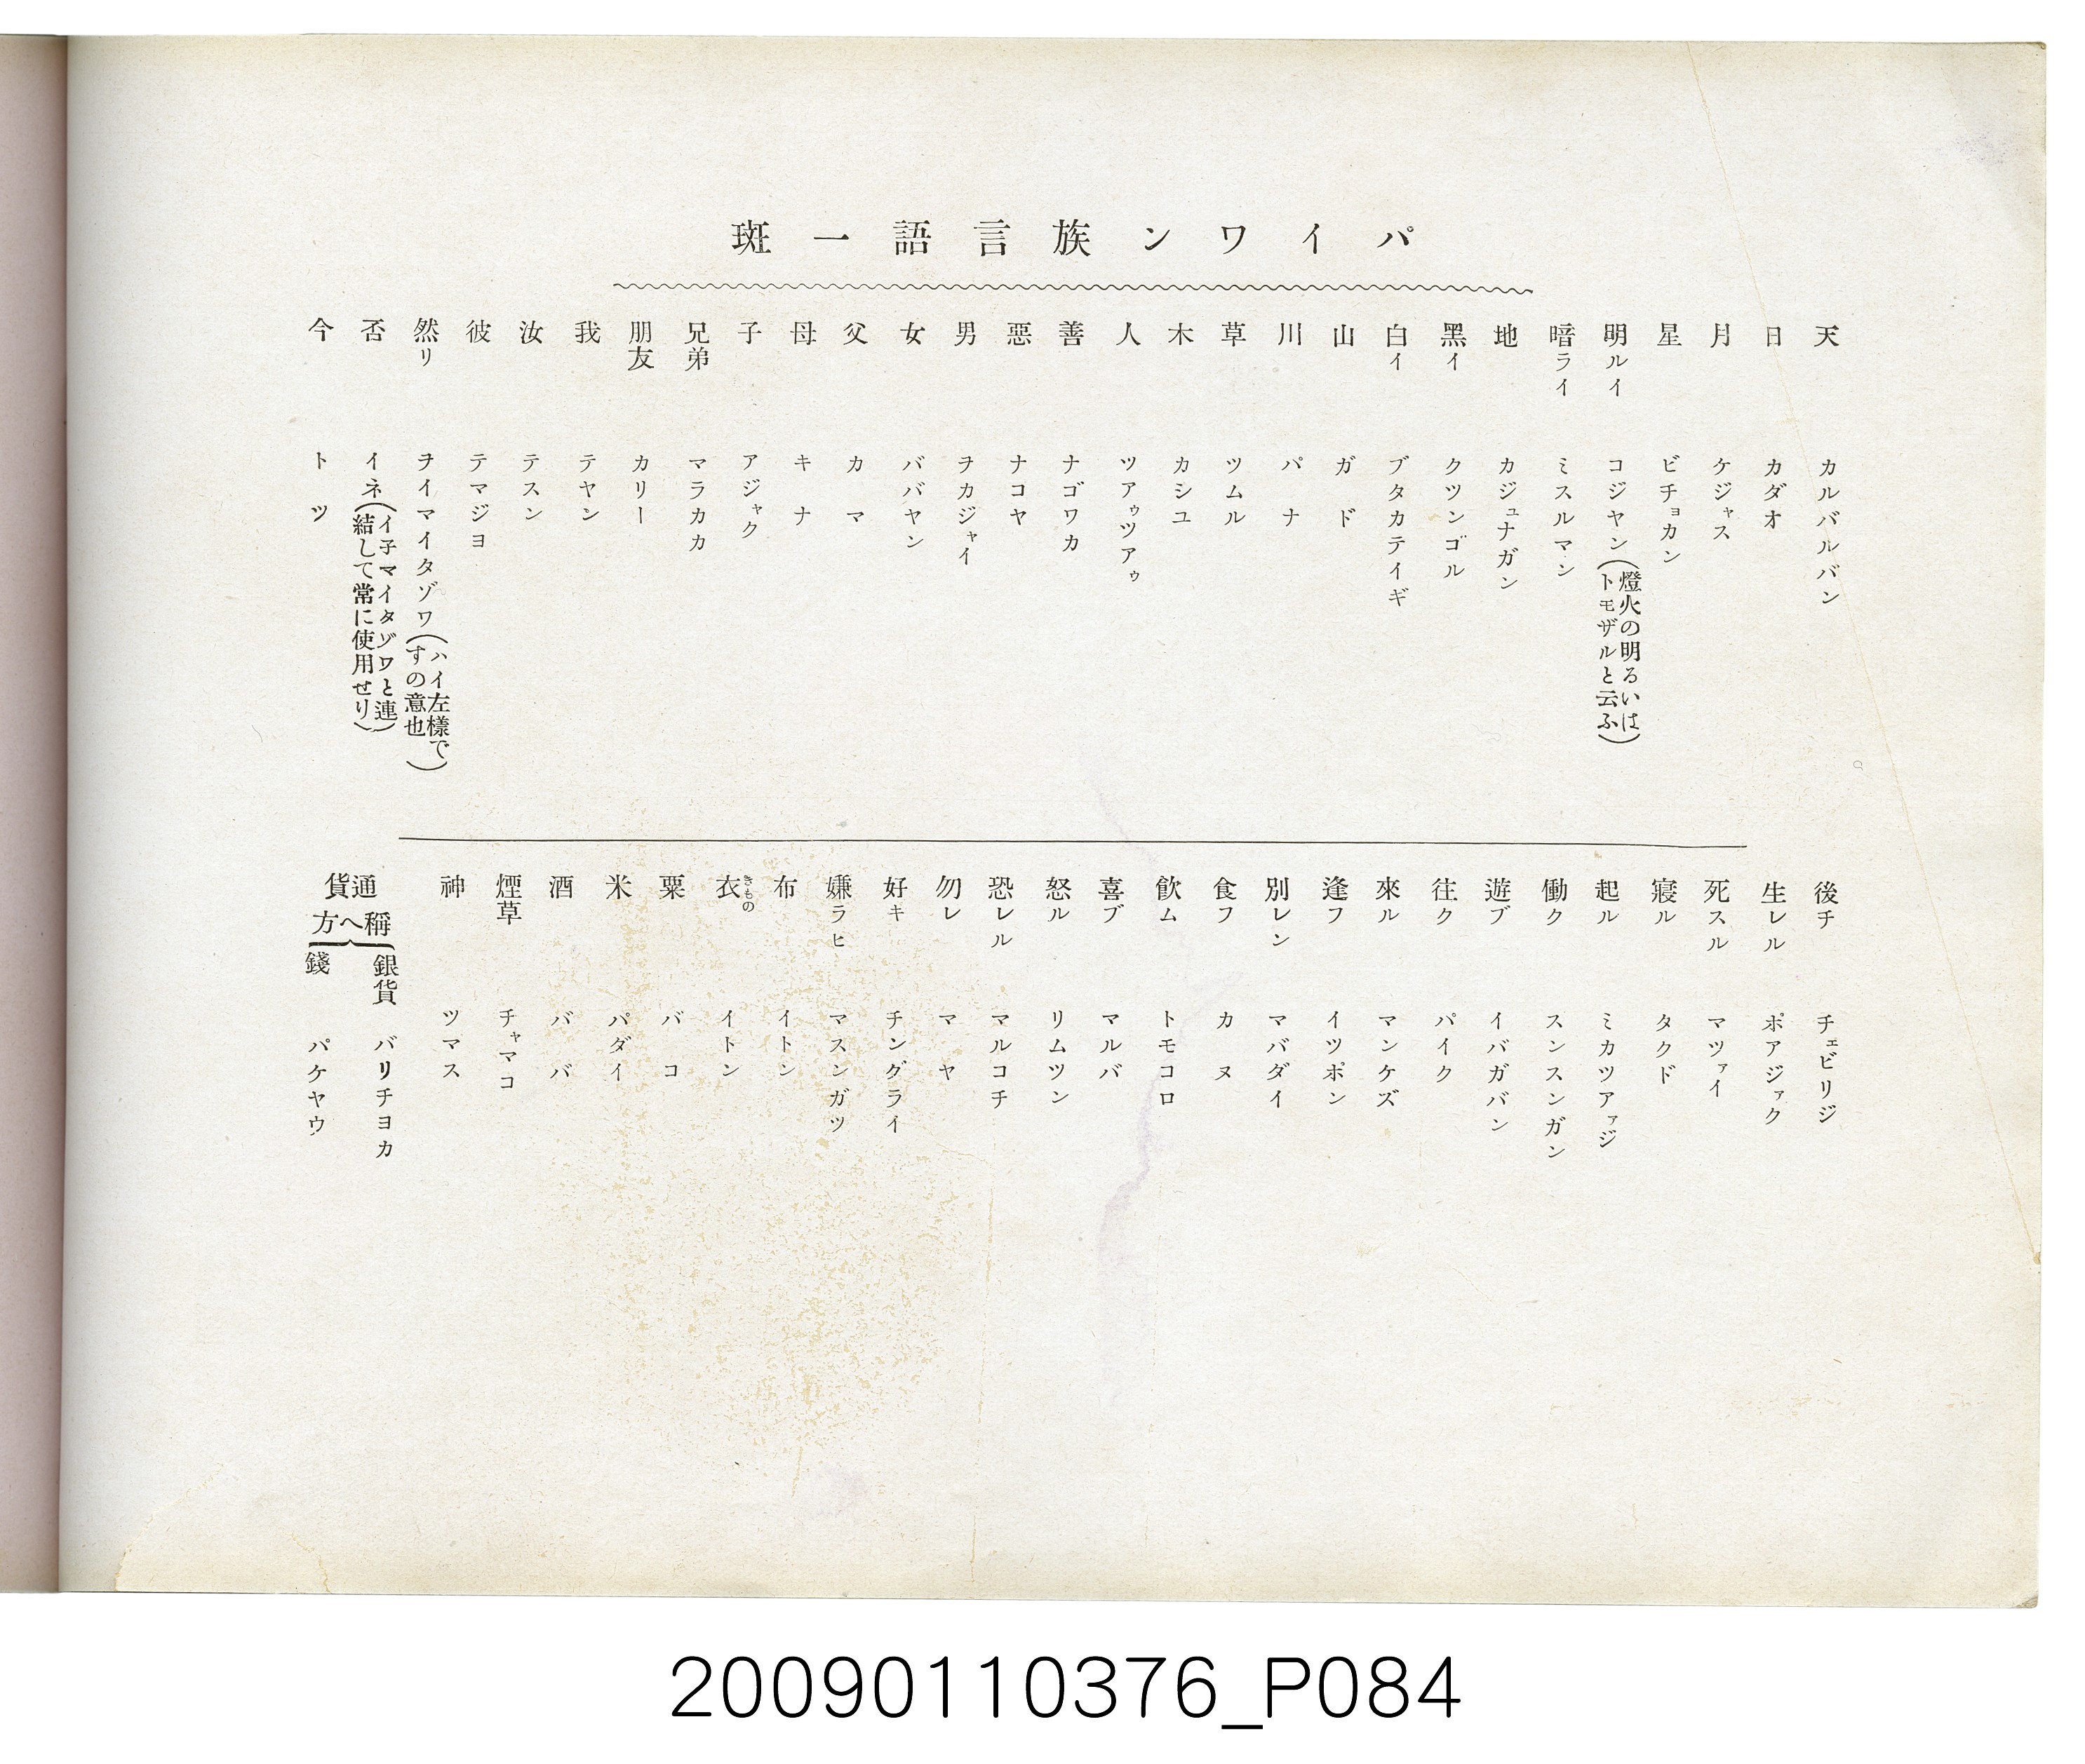 パイワン族言語一斑
天 カルバルバン
日 カダオ
月 ケジャス
星 ビチョカン
明ルイ コジヤン(燈火の明るいはトモザルと云ふ)
暗ライ ミスルマン
地 カジュナガン
黑イ クツンゴル
白イ ブタカテイギ
山 ガド
川 パナ
草 ツムル
木 カシユ
人 ツアゥツアゥ
善 ナゴワカ
惡 ナコヤ
男 ヲカジャイ
女 バパヤン
父 カマ
母 キナ
子 アジャク
兄弟 マラカカ
朋友 カリー
我 テヤン
汝 テスン
彼 テマジヨ
然リ ヲイマイタゾワ(ハイ左樣ですの意也)
否 イネ(イ子マイタゾワと連結して常に使用せり)
今 トツ
後チ チェビリジ
生レル ポアジァク
死スル マツァイ
寢ル タクド
起ル ミカツアァジ
働ク スンスンガン
遊ブ イバガバン
往ク パイク
來ル マンケズ
逢フ イツポン
別レン マバダイ
食フ カヌ
飮ム トモコロ
喜ブ マルバ
怒ル リムツン
恐レル マルコチ
勿レ マヤ
好キ チングライ
嫌ラヒ マスンガツ
布 イトン
衣きもの イトン
粟 バコ
米 パダイ
酒 ババ
煙草 チャマコ
神 ツマス
通貨稱へ方
銀貨 バリチヨカ
錢 パケヤウ